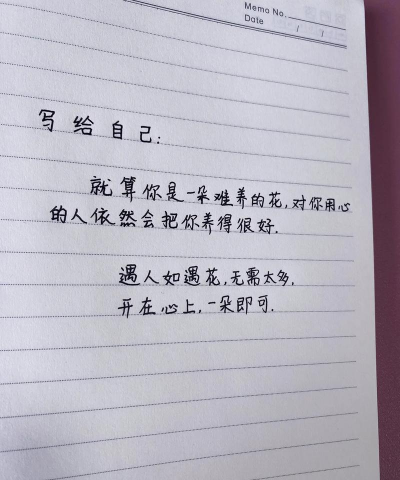 Memo No.
Date / /
写给自己:
就算你是一朵难养的花,对你用心
的人依然会把你养得很好.
遇人如遇花,无需太多.
开在心上,一朵即可.